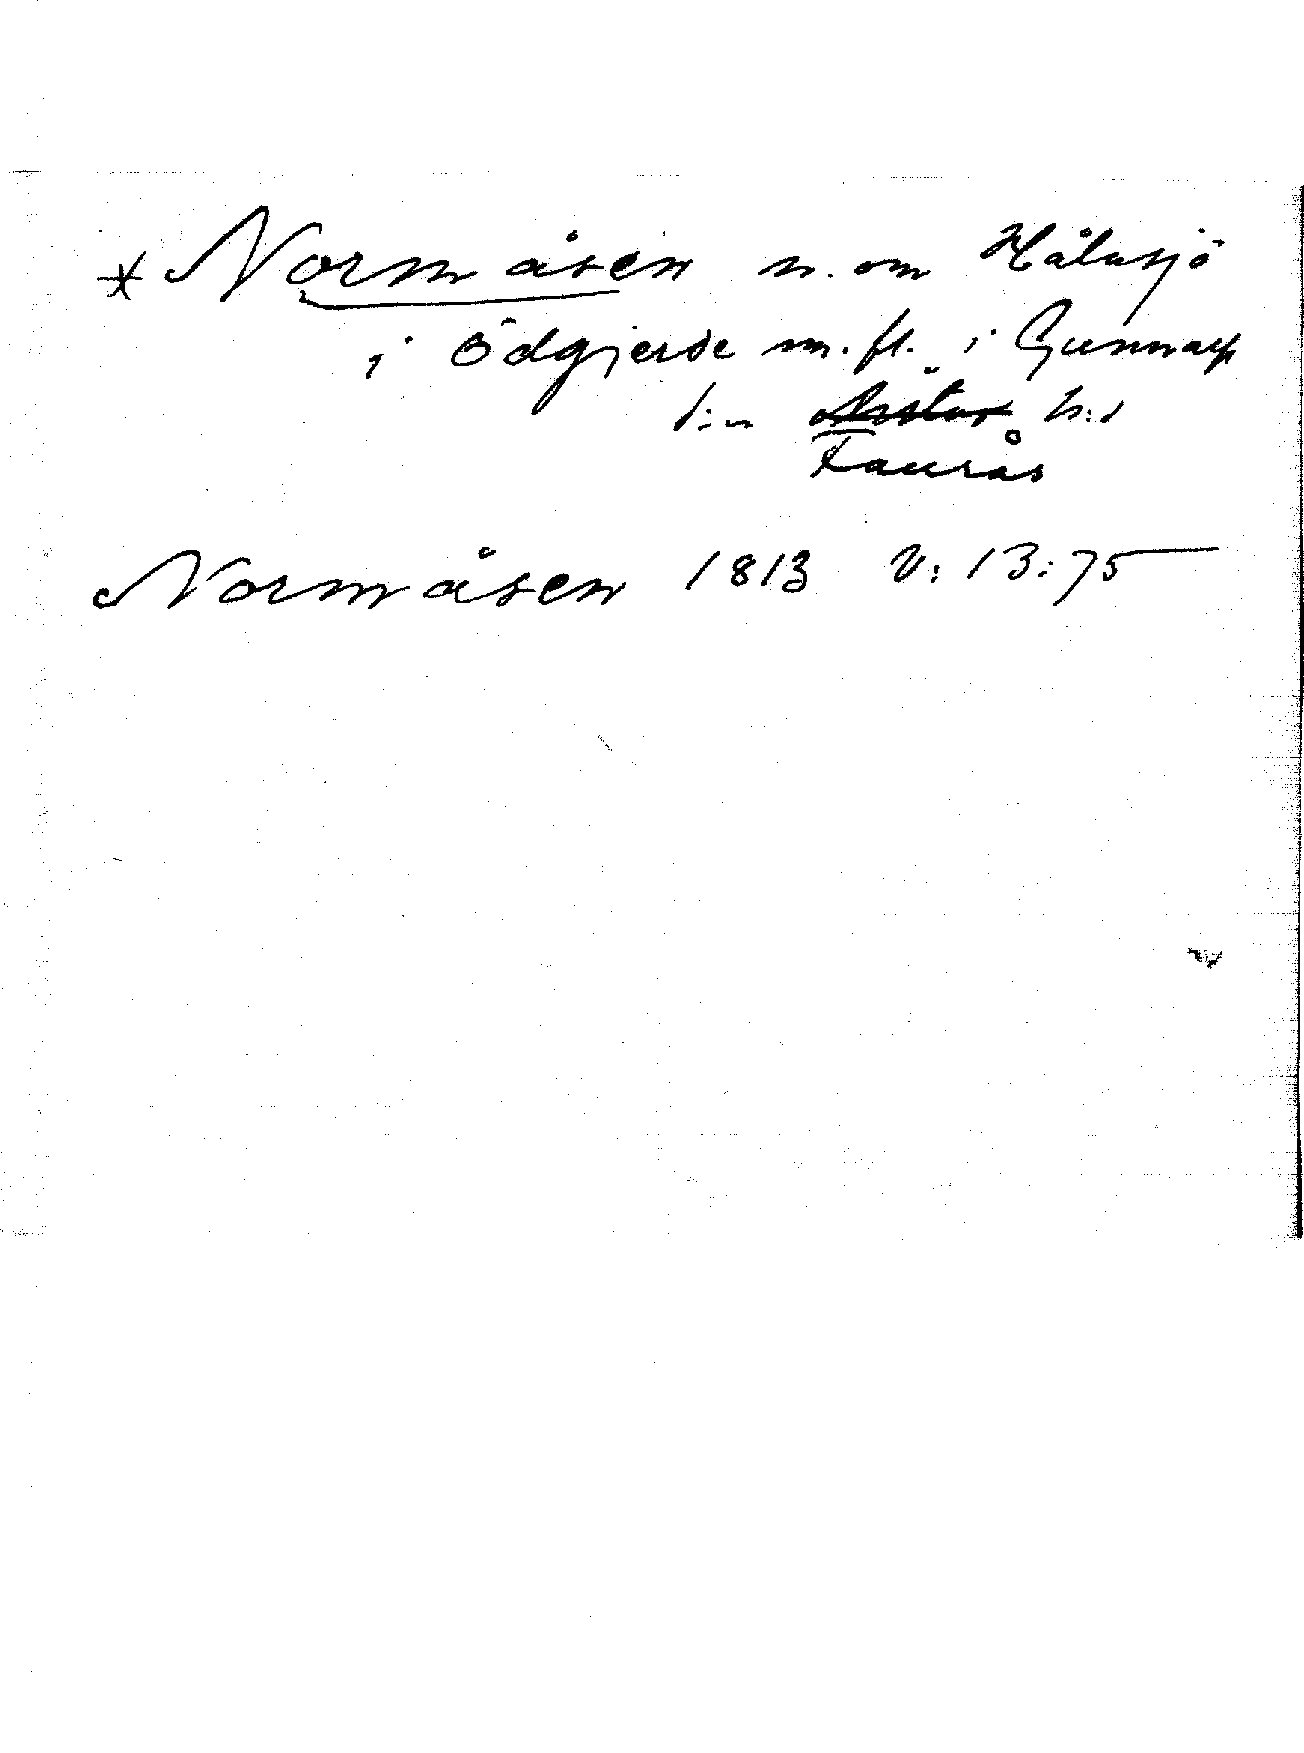 * Normåsen n. om Hålasjö
i Ödgjerde m. fl. i Gunnarp
s:n h:d
Faurås
Normåsen 1813 V: 13:75